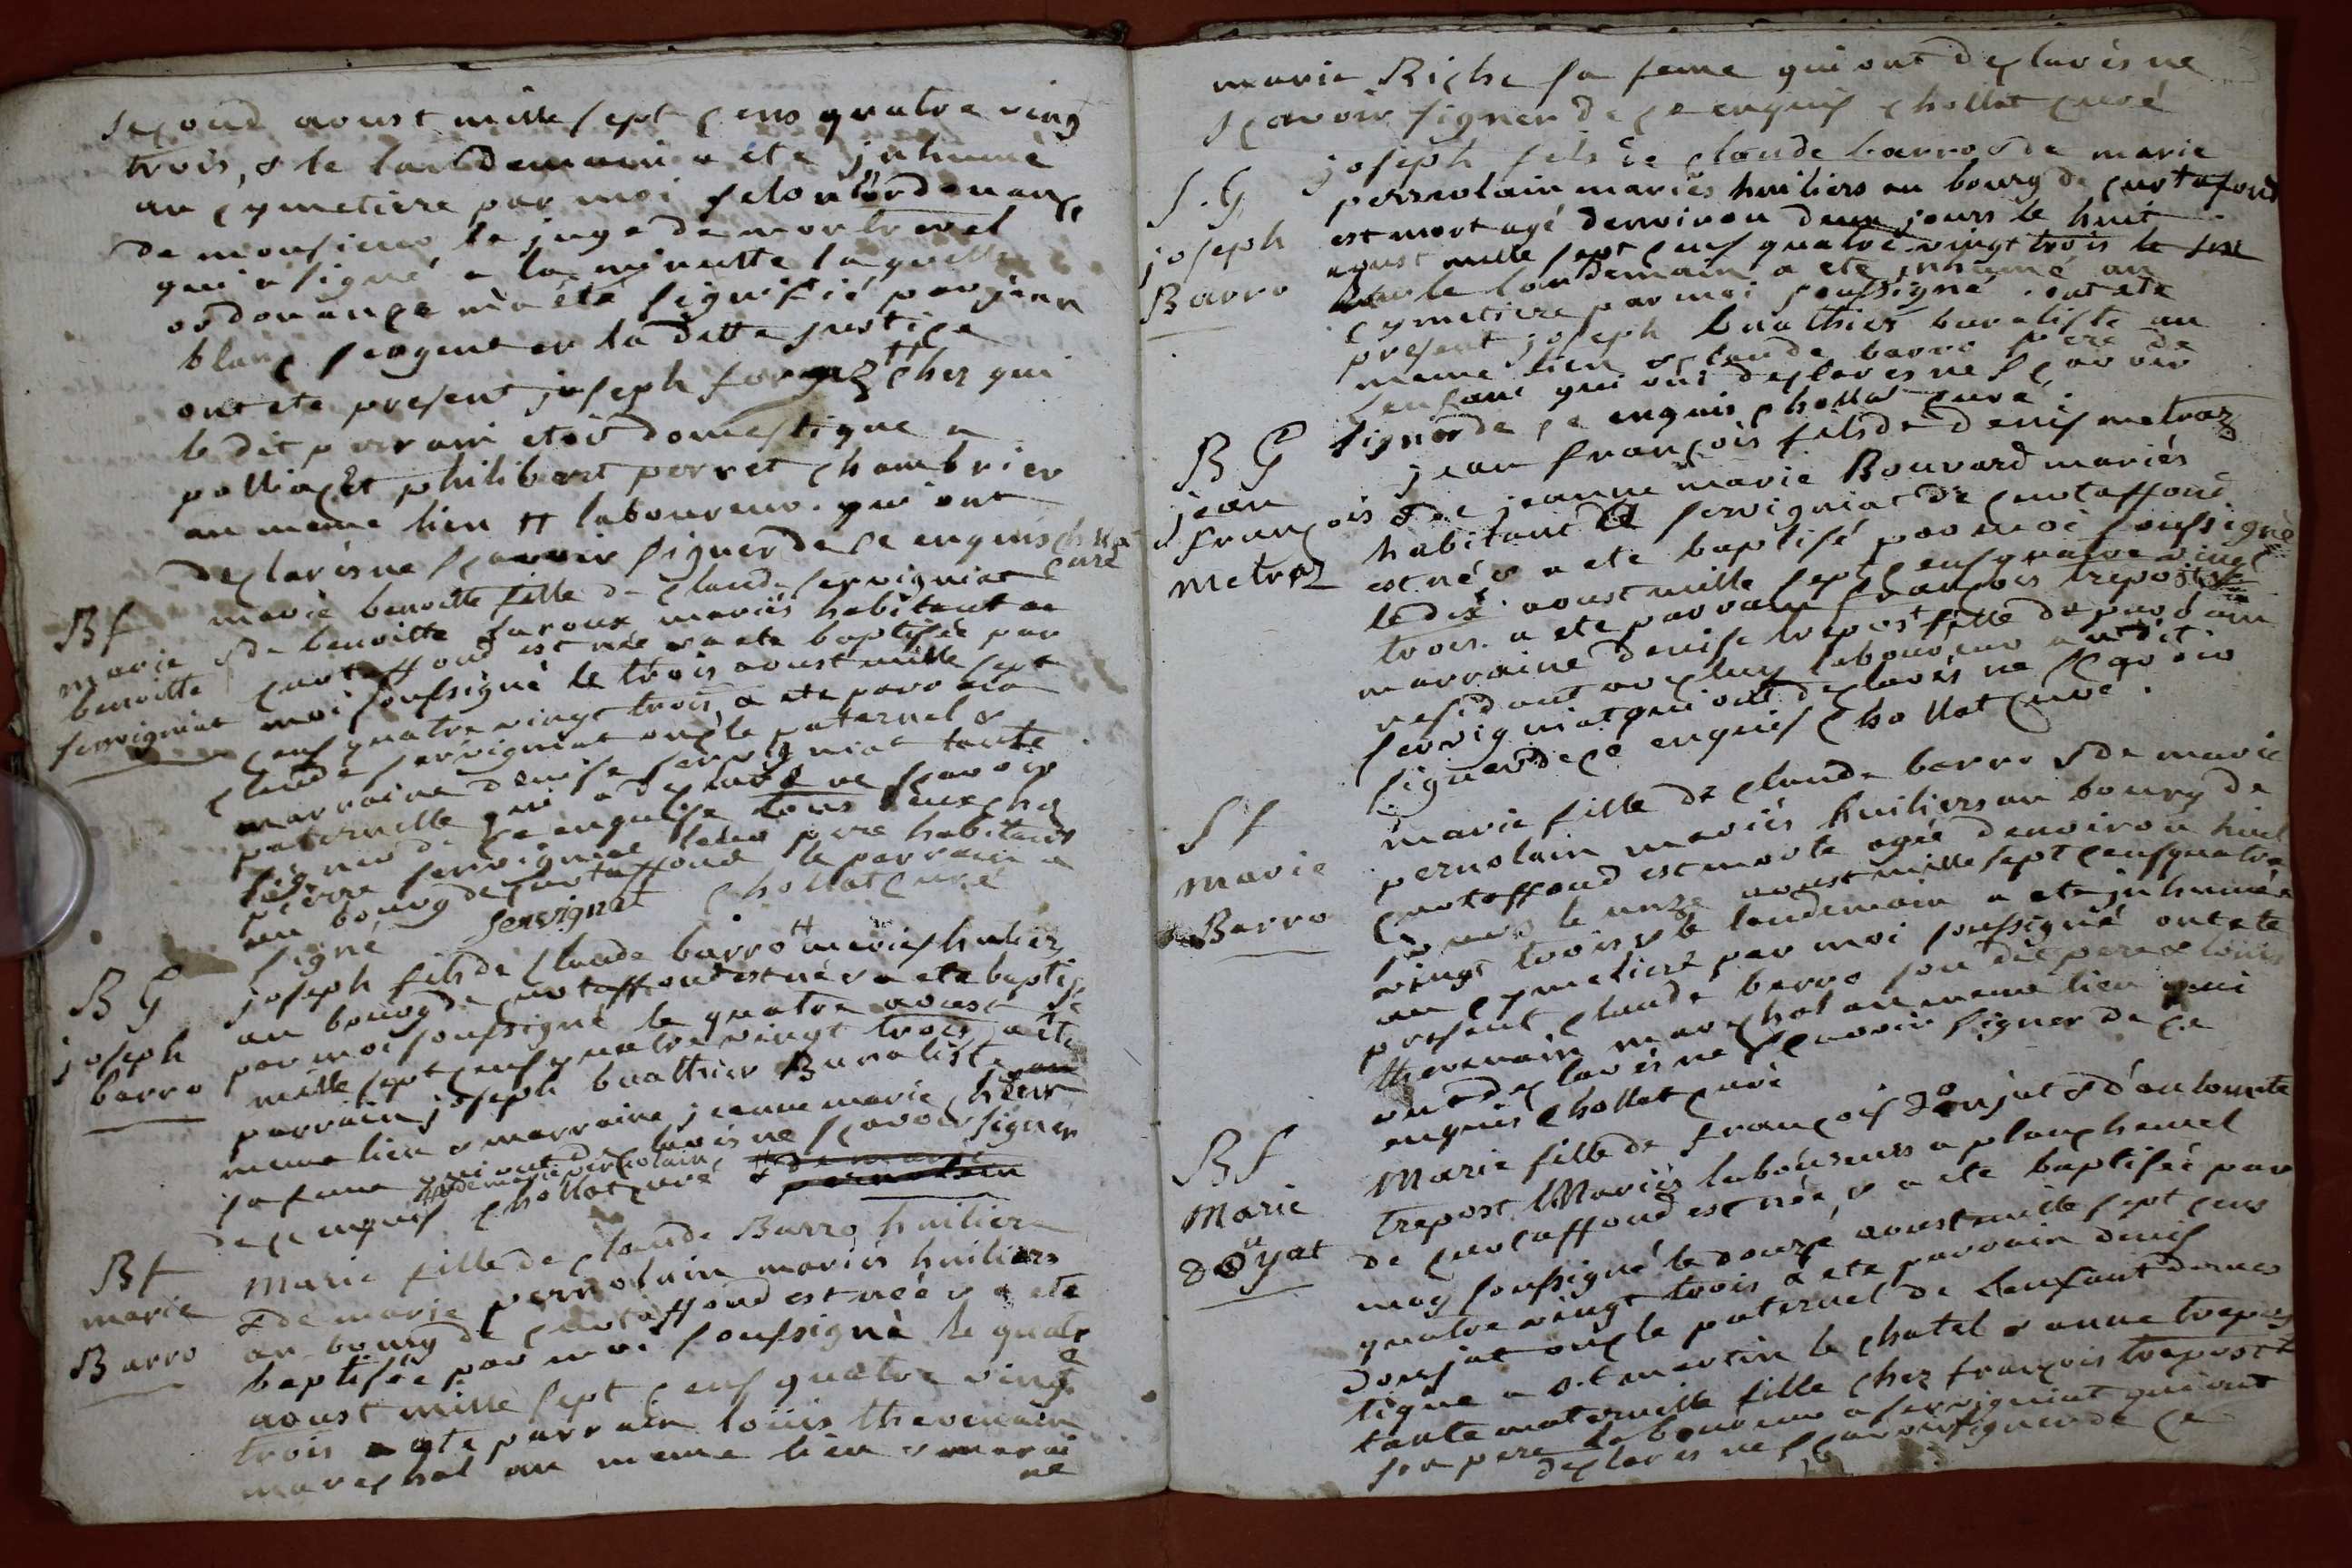 second aoust mille sept cens quatre ving
trois, & le landemain a ete jnhumé
au cymetiere par moi selon lordonnance
de monsieur le juge de montrevel
qui a signé a la minutte laquelle
ordonance m'a été signifié par jean
blanc sergent en la ditte justice
ont ete present joseph chez qui
le dit domestique a
polliac et philibert perret chambrier
au meme lieu H laboureur. qui ont
declarés ne scavoir signer de ce enquis
curé
Bf
marie
benoitte
servigniat
marie benoitte fille de claude servigniat
& de benoitte mariés habitant a
curtaffond est née & a ete baptisée par
moi soussigné le trois aoust mille sept
cens quatre vingt trois, a ete parrain
claude servigniat oncle paternel &
marraine denise servigniat tante
paternelle qui a declaré ne scavoir
signer de ce enquise tous deux chez
pierre servigniat leur pere habitant
au bourg de curtaffond le parrain a
signé servignat chollat curé
B G
joseph
barro
joseph fils de claude barro H mariés huiliers
au bourg de curtaffond est né & a ete baptisé
par moi soussigné le quatre aoust
mille sept cens quatre vingt trois a été
parrain joseph buathier Buraliste au
meme lieu & marraine jeanne marie
sa feme qui ont declarés ne scavoir signer
H & de marie pernolain
de ce enquis chollat curé & de marie
pernolain
Bf
marie
Barro
Marie fille de claude Barro huilier
& de marie pernolain mariés huiliers
au bourg de curtaffond est née & a ete
baptisée par moi soussigné le quatre
aoust mille sept cens quatre vingt
trois a ete parrain loüis thevenain
marechal au meme lieu & marai
ne
marie Riche sa feme qui ont declarés ne
scavoir signer de ce enquis chollat curé
S. G
joseph
Barro
joseph fils de claude barro & de marie
pernolain mariés huiliers au bourg de curtafond
est mort agé denviron deux jours le huit
aoust mille sept cens quatre vingt trois
le landemain a ete jnhumé au
cymetiere par moi soussigné. ont ete
present joseph buathier buraliste au
meme lieu & claude barro pere de
lenfant qui ont declares ne scavoir
signer de ce enquis chollat curé.
B G
jean
françois
metraz
jean françois fils de denis metraz
& de jeanne marie Bouvard mariés
habitant a servigniat de curtaffond
est né & a ete baptisé par moi soussigné
le dix aoust mille sept cens quatre vingt
trois. a ete parrain françois trepost
marraine denise trepost fille du parrain
residant avec luy laboureur au dit
servigniat qui ont declarés ne scavoir
signer de ce enquis chollat curé.
S f
marie
Barro
marie fille de claude barro & de marie
pernolain mariés huiliers au bourg de
curtaffond est morte agée denviron huit
jours le onze aoust mille sept cens quatre
vingt trois & le landemain a ete jnhumée
au cymetiere par moi soussigné ont ete
present claude barro son dit pere & loüis
thevenain marechal au meme lieu qui
ont declarés ne scavoir signer de ce
enquis chollat curé
B f
Marie
Doüyat
Marie fille de françois & d'antoinette
trepost Mariés laboureurs a planchemel
de curtaffond est née, & a ete baptisée par
moy soussigné le douze aoust mille sept cens
quatre vingt trois a ete parrain denis
oncle paternel de Lenfant domes
tique a st martin le chatel & anne trepost
tante maternelle fille chez françois trepost
son pere laboureur a servigniat qui ont
declarés ne scavoir signer de ce